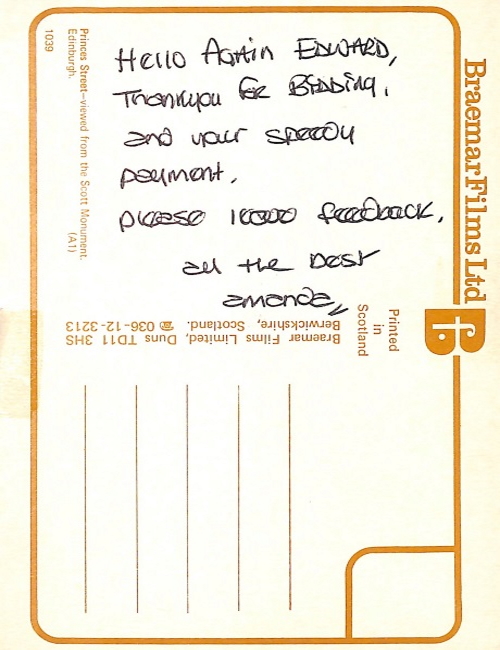 Hello Again EDWARD,
Thankyou for BIDDING,
and your speedy
payment.
please leave feedback,
all the best
amanda
Braemar Films Ltd
fb
Printed
in
Scotland
Braemar Films Limited, Duns TD11 3HS
Berwickshire, Scotland. ☎ 036-12-3213
Princes Street—viewed from the Scott Monument.
Edinburgh. (A1)
1039